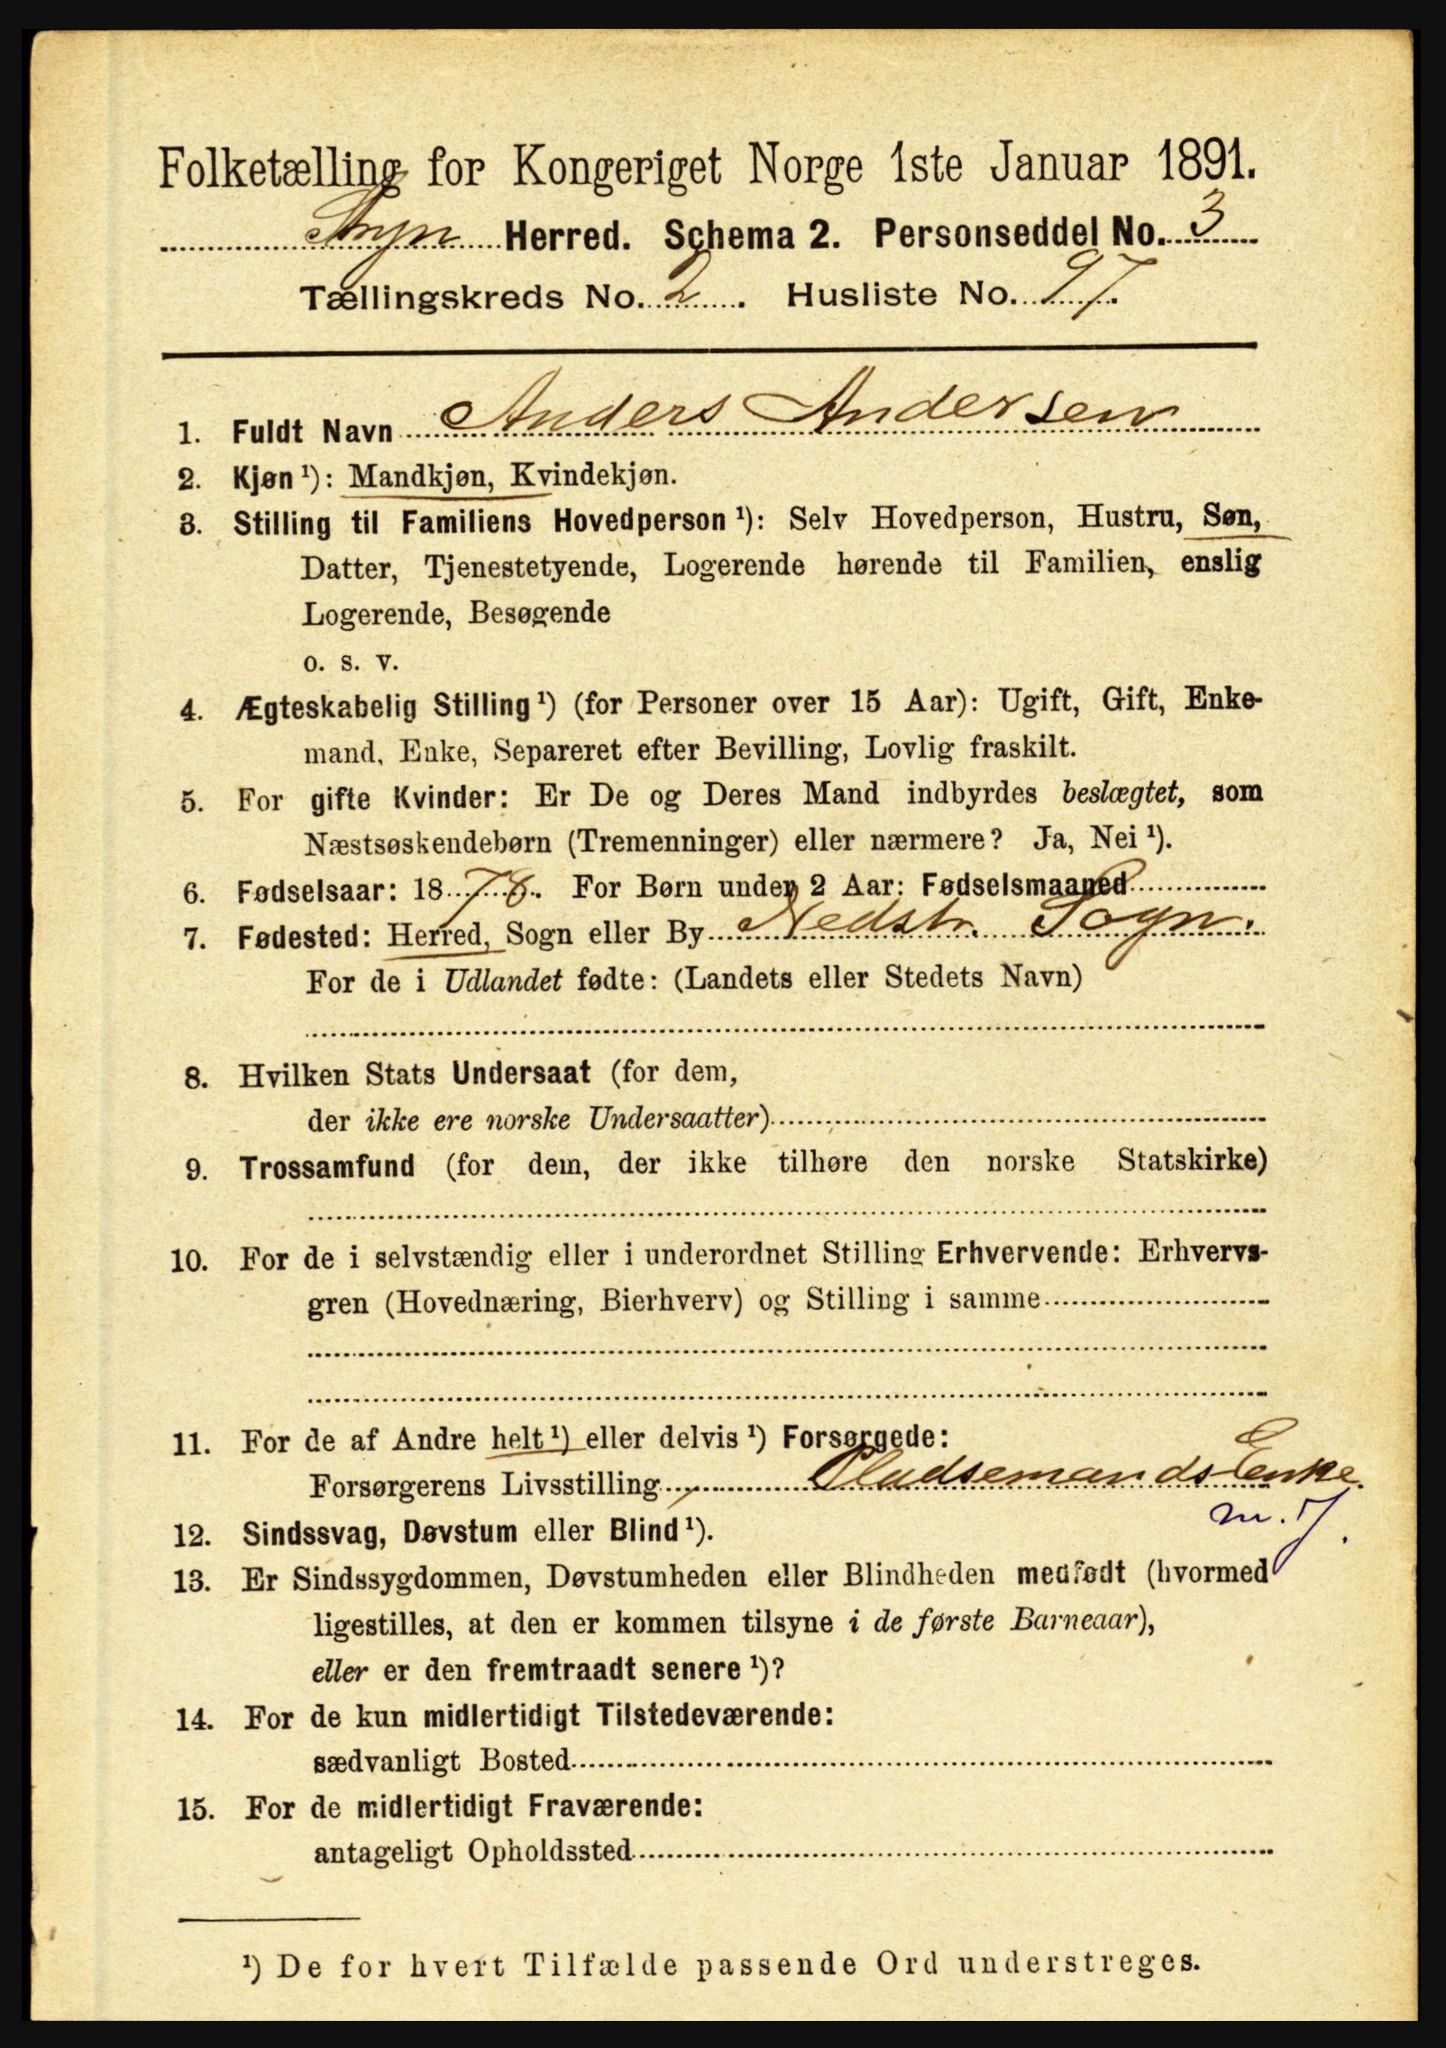 Folketælling for Kongeriget Norge 1ste Januar 1891.
Stryn Herred. Schema 2. Personseddel No. 3
Tællingskreds No. 2. Husliste No. 97.
1. Fuldt Navn Anders Andersen
2. Kjøn ¹): Mandkjøn, Kvindekjøn.
3. Stilling til Familiens Hovedperson ¹): Selv Hovedperson, Hustru, Søn,
Datter, Tjenestetyende, Logerende hørende til Familien, enslig
Logerende, Besøgende
o. s. v.
4. Ægteskabelig Stilling ¹) (for Personer over 15 Aar): Ugift, Gift, Enke-
mand, Enke, Separeret efter Bevilling, Lovlig fraskilt.
5. For gifte Kvinder: Er De og Deres Mand indbyrdes beslægtet, som
Næstsøskendebørn (Tremenninger) eller nærmere? Ja, Nei ¹).
6. Fødselsaar: 1878. For Børn under 2 Aar: Fødselsmaaned
7. Fødested: Herred, Sogn eller By Nedstr. Sogn.
For de i Udlandet fødte: (Landets eller Stedets Navn)
8. Hvilken Stats Undersaat (for dem,
der ikke ere norske Undersaatter)
9. Trossamfund (for dem, der ikke tilhøre den norske Statskirke)
10. For de i selvstændig eller i underordnet Stilling Erhvervende: Erhvervs-
gren (Hovednæring, Bierhverv) og Stilling i samme
11. For de af Andre helt ¹) eller delvis ¹) Forsørgede:
Forsørgerens Livsstilling Pladsemands Enke
m. J.
12. Sindssvag, Døvstum eller Blind ¹).
13. Er Sindssygdommen, Døvstumheden eller Blindheden medfødt (hvormed
ligestilles, at den er kommen tilsyne i de første Barneaar),
eller er den fremtraadt senere ¹)?
14. For de kun midlertidigt Tilstedeværende:
sædvanligt Bosted
15. For de midlertidigt Fraværende:
antageligt Opholdssted
¹) De for hvert Tilfælde passende Ord understreges.